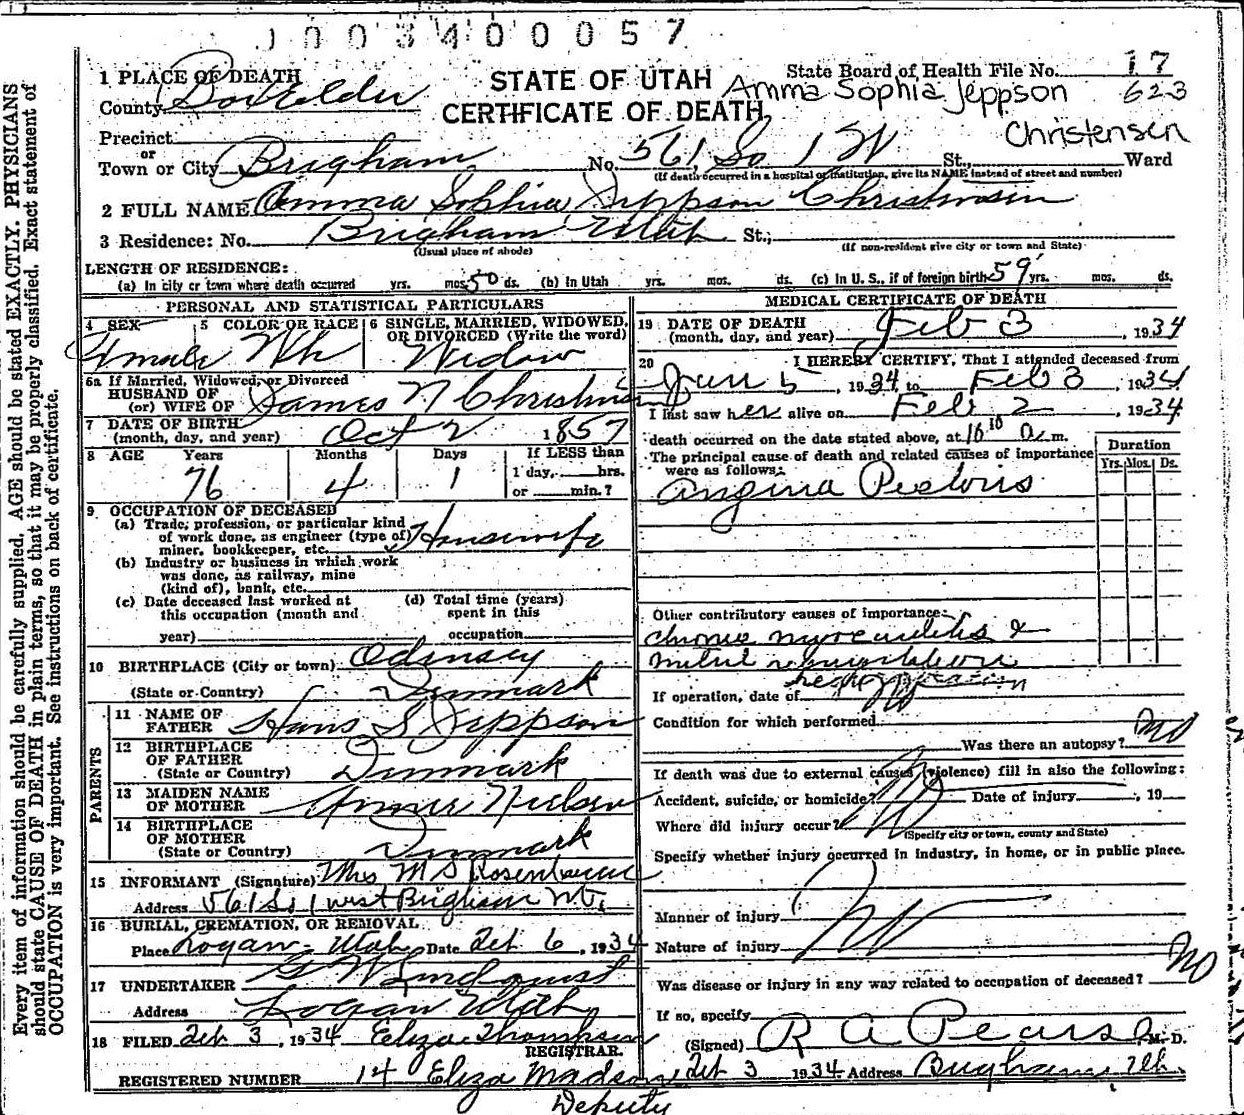 1003400057
1 PLACE OF DEATH
STATE OF UTAH
State Board of Health File No. 17
County Box Elder
CERTIFICATE OF DEATH
Amma Sophia Jeppson 623
Christensen
Precinct
or
Town or City Brigham No. 561 So 1 W St., Ward
(If death occurred in a hospital or institution, give its NAME instead of street and number)
2 FULL NAME Amma Sophia Jeppson Christensen
3 Residence: No. Brigham Utah St.;
(Usual place of abode) (If non-resident give city or town and State)
LENGTH OF RESIDENCE:
(a) In city or town where death occurred yrs. mos. 50 ds. (b) In Utah yrs. mos. ds. (c) In U. S., if of foreign birth 59 yrs. mos. ds.
PERSONAL AND STATISTICAL PARTICULARS
4 SEX 5 COLOR OR RACE 6 SINGLE, MARRIED, WIDOWED, OR DIVORCED (Write the word)
Female Wh Widow
6a If Married, Widowed, or Divorced
HUSBAND OF
(or) WIFE OF James N Christensen
7 DATE OF BIRTH
(month, day, and year) Oct 2 1857
8 AGE Years Months Days If LESS than
76 4 1 1 day, hrs.
or min.?
9 OCCUPATION OF DECEASED
(a) Trade, profession, or particular kind
of work done, as engineer (type of)
miner, bookkeeper, etc. Housewife
(b) Industry or business in which work
was done, as railway, mine
(kind of), bank, etc.
(c) Date deceased last worked at
this occupation (month and
year)
(d) Total time (years)
spent in this
occupation
10 BIRTHPLACE (City or town) Odinsey
(State or Country) Denmark
PARENTS
11 NAME OF
FATHER Hans S Jeppson
12 BIRTHPLACE
OF FATHER
(State or Country) Denmark
13 MAIDEN NAME
OF MOTHER Annie Nielsen
14 BIRTHPLACE
OF MOTHER
(State or Country) Denmark
15 INFORMANT (Signature) Mrs M S Rosenbaum
Address 561 So 1 west Brigham Ut.
16 BURIAL, CREMATION, OR REMOVAL
Place Logan - Utah Date Feb 6, 1934
17 UNDERTAKER Lindquist
Address Logan Utah
18 FILED Feb 3, 1934 Eliza Thompson
REGISTRAR.
REGISTERED NUMBER 14 Eliza Madsen
Deputy
MEDICAL CERTIFICATE OF DEATH
19 DATE OF DEATH
(month, day, and year) Feb 3, 1934
20 I HEREBY CERTIFY, That I attended deceased from
Jan 5, 1934 to Feb 3, 1934
I last saw her alive on Feb 2, 1934
death occurred on the date stated above, at 10 10 a. m.
The principal cause of death and related causes of importance
were as follows:
Duration
Yrs. Mos. Ds.
Angina Pectoris
Other contributory causes of importance:
chronic myocarditis &
mitral regurgitation
If operation, date of
Condition for which performed
Was there an autopsy? no
If death was due to external causes (violence) fill in also the following:
Accident, suicide, or homicide? Date of injury , 19
Where did injury occur?
(Specify city or town, county and State)
Specify whether injury occurred in industry, in home, or in public place.
Manner of injury
Nature of injury
Was disease or injury in any way related to occupation of deceased? no
If so, specify
(Signed) R A Pearse M. D.
Feb 3 1934 Address Brigham, Ut.
Every item of information should be carefully supplied. AGE should be stated EXACTLY. PHYSICIANS
should state CAUSE OF DEATH in plain terms, so that it may be properly classified. Exact statement of
OCCUPATION is very important. See instructions on back of certificate.